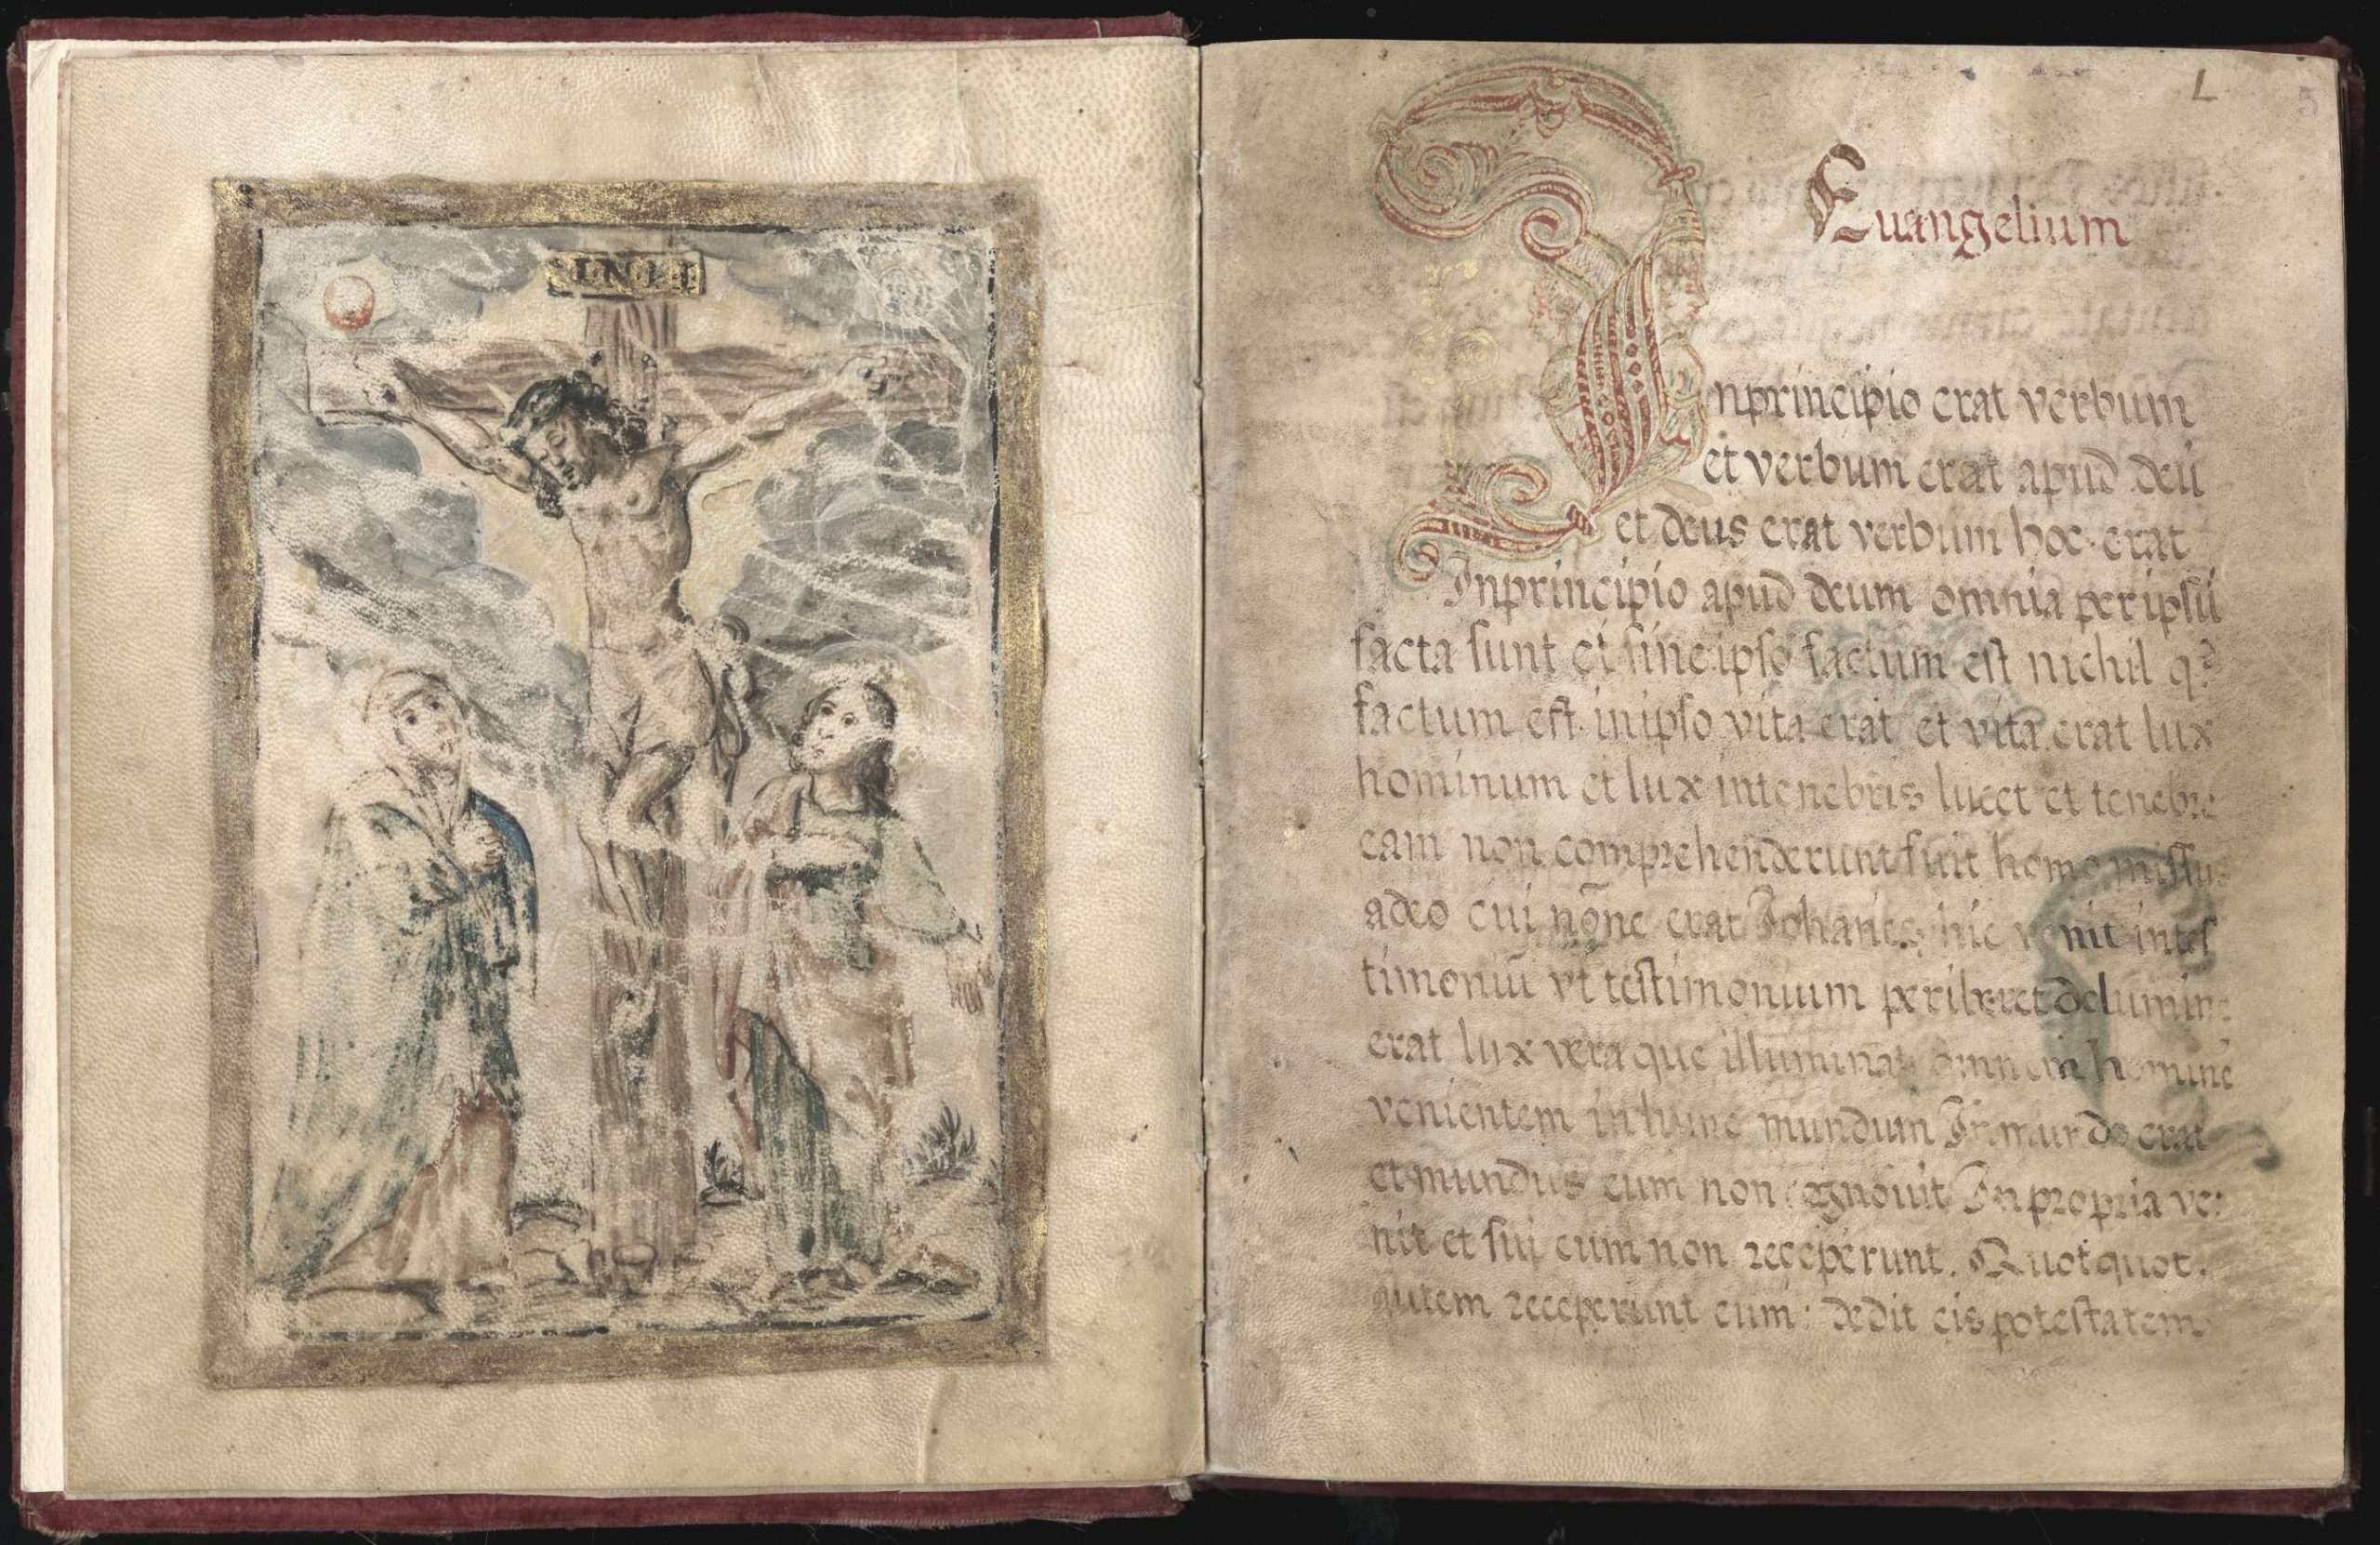 INRI
L
5
Euangelium
Inprincipio erat verbum
et verbum erat apud deū
et deus erat verbum hoc erat
Inprincipio apud deum omnia per ipsū
facta sunt et sine ipso factum est nichil qᵈ
factum est. in ipso vita erat et vita erat lux
hominum et lux intenebris lucet et tenebre
eam non comprehenderunt fuit homo missus
adeo cui nōne erat Johanes hic venit intes
timoniū vt testimonium periberet delumine
erat lux vera que illuminat omnem hominē
venientem inhunc mundum Inmundo erat
et mundus eum non cognouit In propria ve:
nit et sui eum non receperunt. Quotquot.
autem receperunt eum: dedit eis potestatem